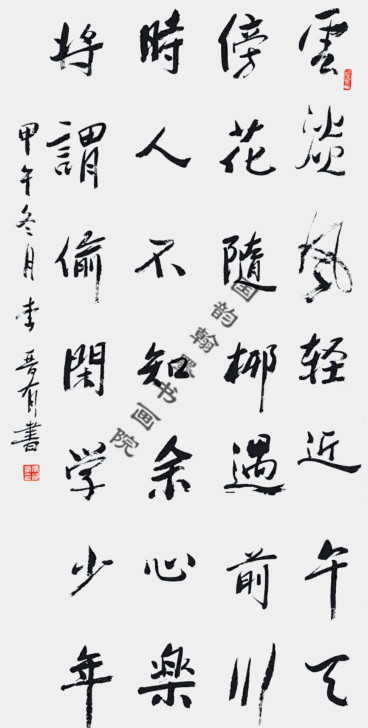 雲淡风轻近午天
傍花隨柳過前川
時人不知余心楽
将謂偷閑学少年
甲午冬月李晋有書
国韵翰墨书画院